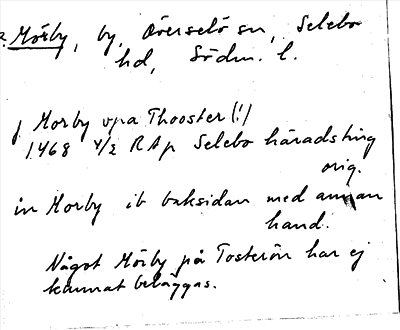 Mörby, by, Överselö sn, Selebo
hd, Södm. l.
J Morby vpa Thooster (!)
1468 4/2 RAp Selebo häradsting
orig.
in Morby ib baksidan med annan
hand.
Något Mörby på Tosterön har ej
kunnat beläggas.